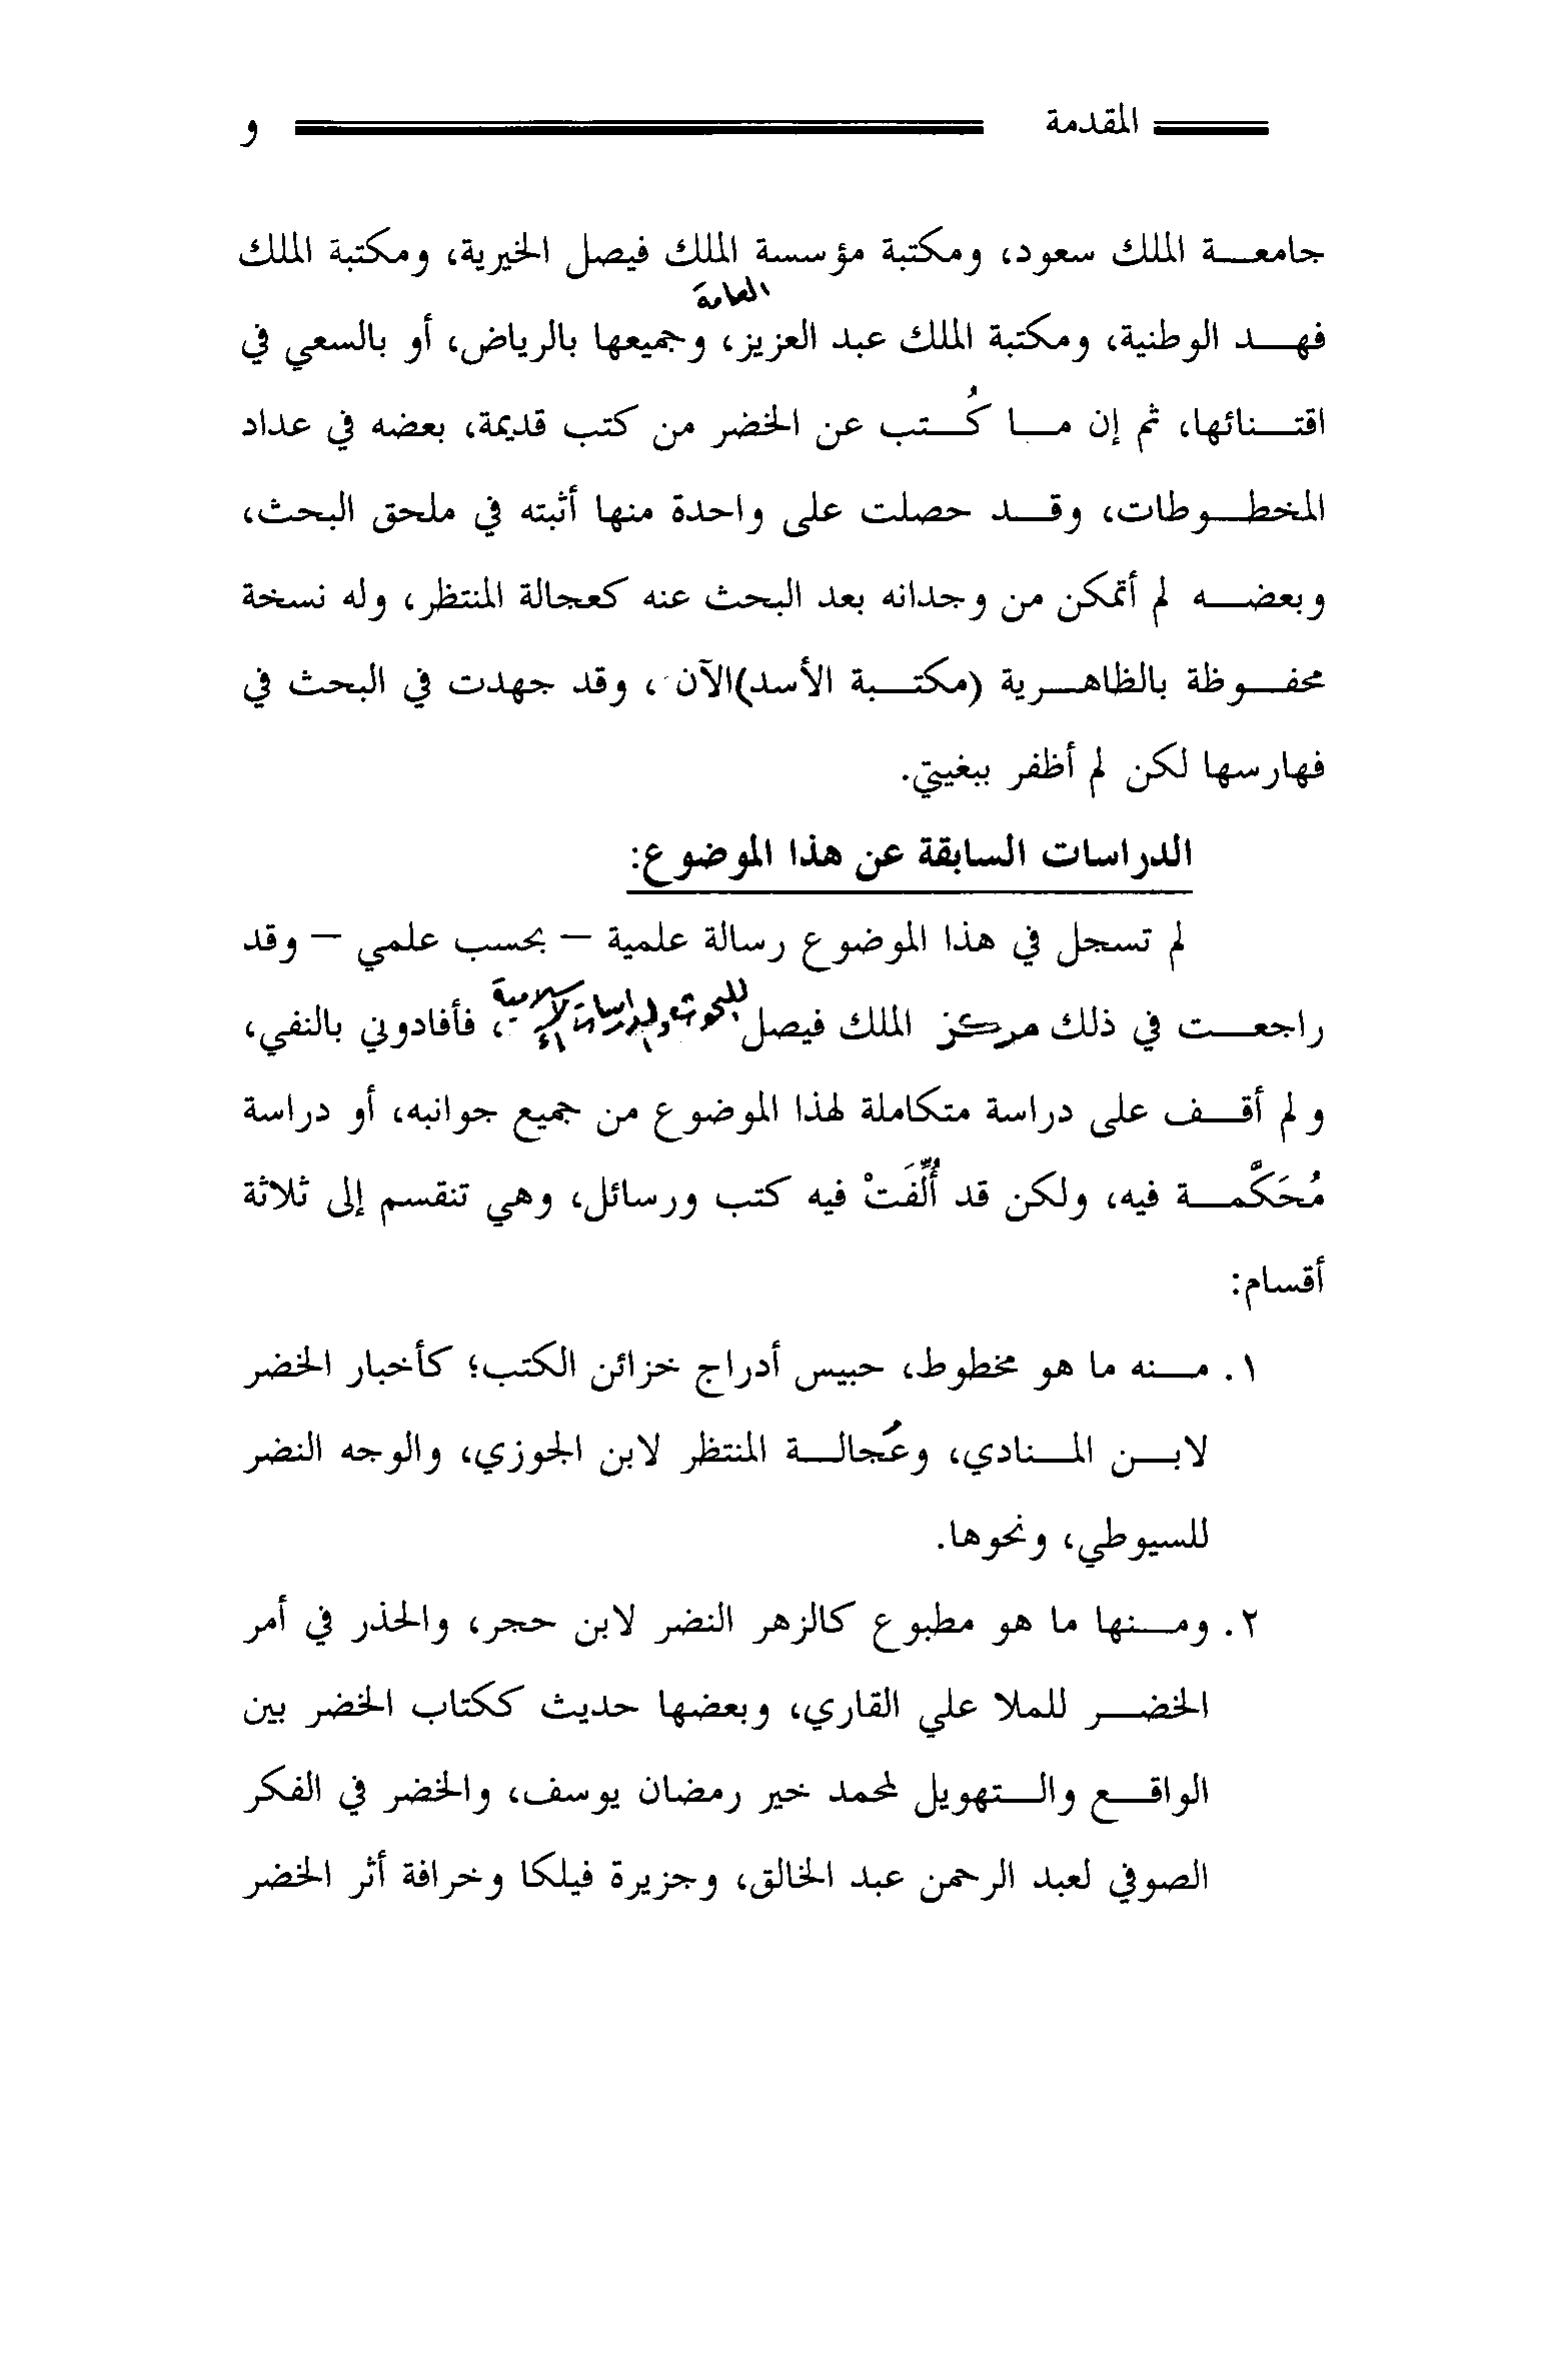 المقدمة و
جامعة الملك سعود، ومكتبة مؤسسة الملك فيصل الخيرية، ومكتبة الملك
العامة
فهد الوطنية، ومكتبة الملك عبد العزيز، وجميعها بالرياض، أو بالسعي في
اقتنائها، ثم إن ما كُتب عن الخضر من كتب قديمة، بعضه في عداد
المخطوطات، وقد حصلت على واحدة منها أثبته في ملحق البحث،
وبعضه لم أتمكن من وجدانه بعد البحث عنه كعجالة المنتظر، وله نسخة
محفوظة بالظاهرية (مكتبة الأسد)الآن، وقد جهدت في البحث في
فهارسها لكن لم أظفر ببغيتي.
الدراسات السابقة عن هذا الموضوع:
لم تسجل في هذا الموضوع رسالة علمية – بحسب علمي – وقد
للبحوث والدراسات الإسلامية
راجعت في ذلك مركز الملك فيصل، فأفادوني بالنفي،
ولم أقف على دراسة متكاملة لهذا الموضوع من جميع جوانبه، أو دراسة
مُحَكَّمة فيه، ولكن قد أُلِّفَتْ فيه كتب ورسائل، وهي تنقسم إلى ثلاثة
أقسام:
١. منه ما هو مخطوط، حبيس أدراج خزائن الكتب؛ كأخبار الخضر
لابن المنادي، وعُجالة المنتظر لابن الجوزي، والوجه النضر
للسيوطي، ونحوها.
٢. ومنها ما هو مطبوع كالزهر النضر لابن حجر، والحذر في أمر
الخضر للملا علي القاري، وبعضها حديث ككتاب الخضر بين
الواقع والتهويل لمحمد خير رمضان يوسف، والخضر في الفكر
الصوفي لعبد الرحمن عبد الخالق، وجزيرة فيلكا وخرافة أثر الخضر